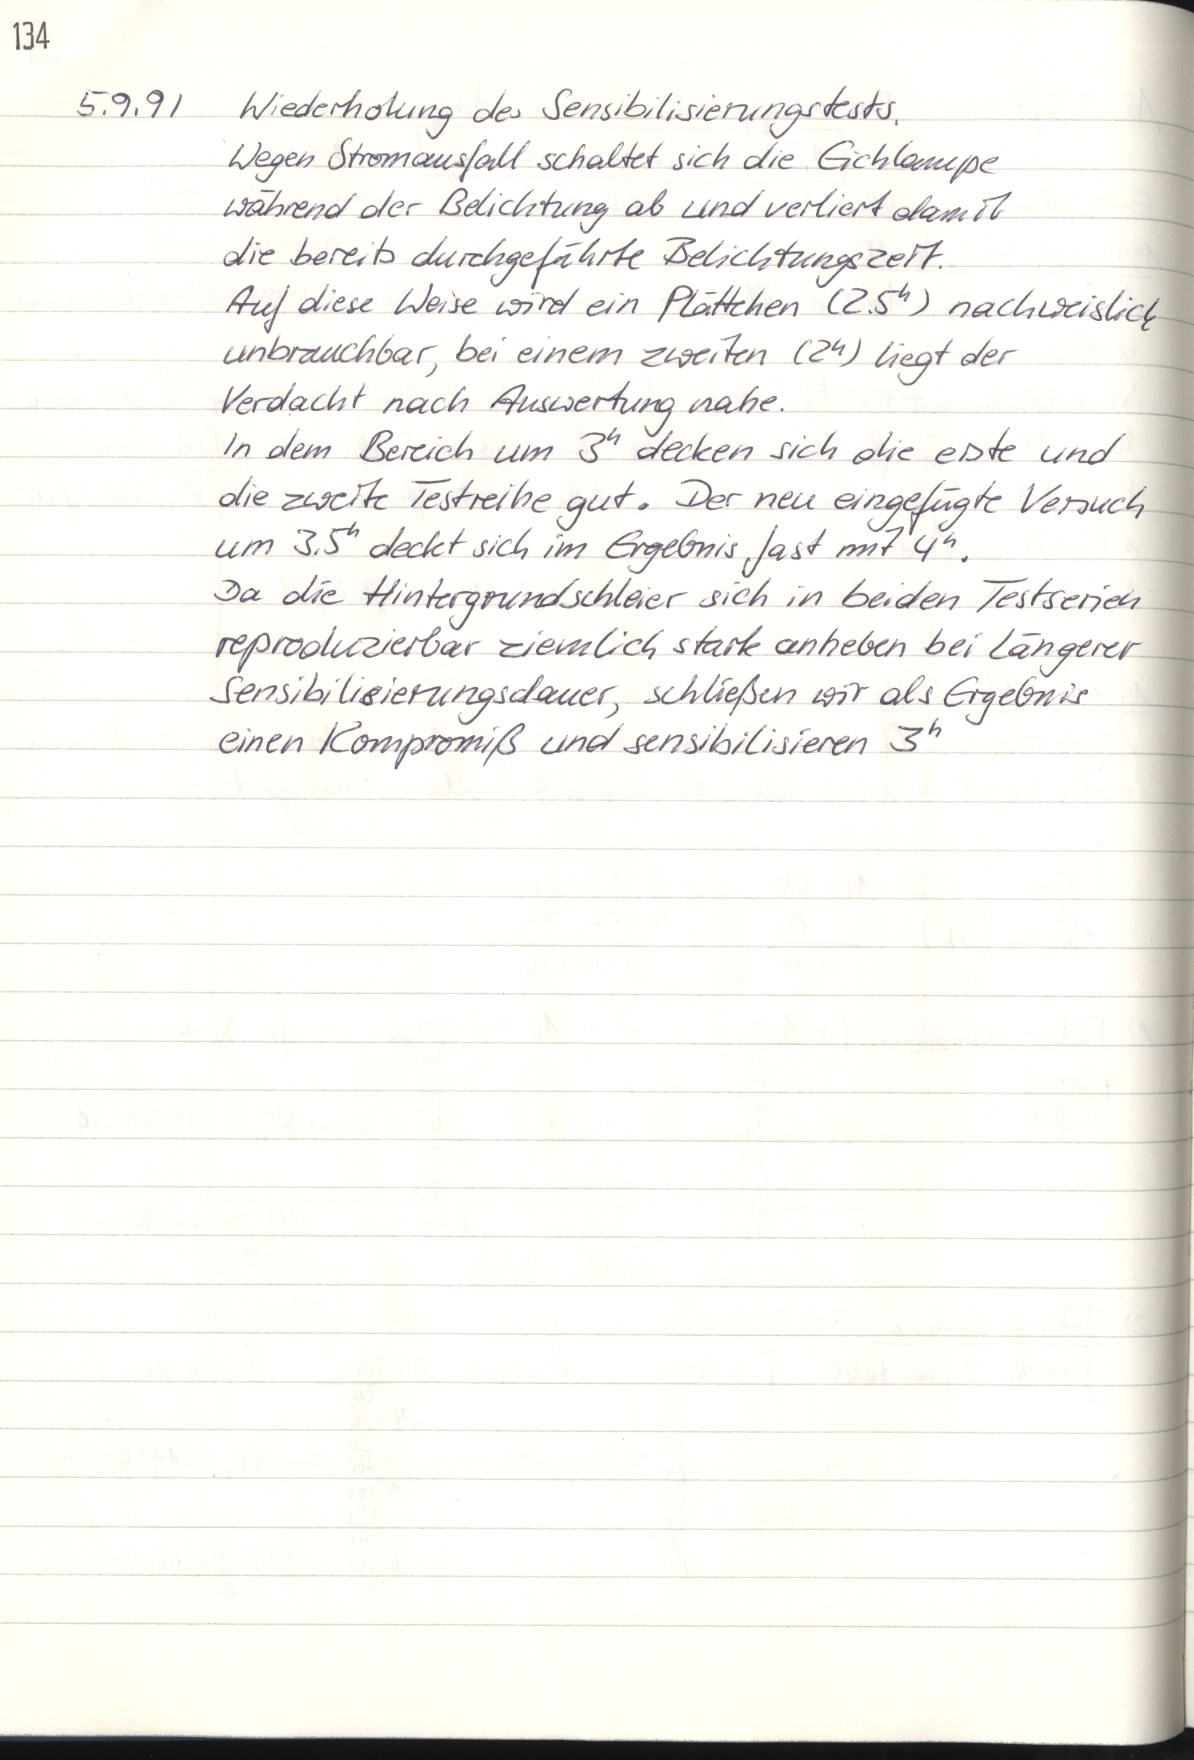 134
5.9.91 Wiederholung des Sensibilisierungstests.
Wegen Stromausfall schaltet sich die Eichlampe
während der Belichtung ab und verliert damit
die bereits durchgeführte Belichtungszeit.
Auf diese Weise wird ein Plättchen (2.5ʰ) nachweislich
unbrauchbar, bei einem zweiten (2ʰ) liegt der
Verdacht nach Auswertung nahe.
In dem Bereich um 3ʰ decken sich die erste und
die zweite Testreihe gut. Der neu eingefügte Versuch
um 3.5ʰ deckt sich im Ergebnis fast mit 4ʰ.
Da die Hintergrundschleier sich in beiden Testserien
reproduzierbar ziemlich stark anheben bei längerer
Sensibilisierungsdauer, schließen wir als Ergebnis
einen Kompromiß und sensibilisieren 3ʰ